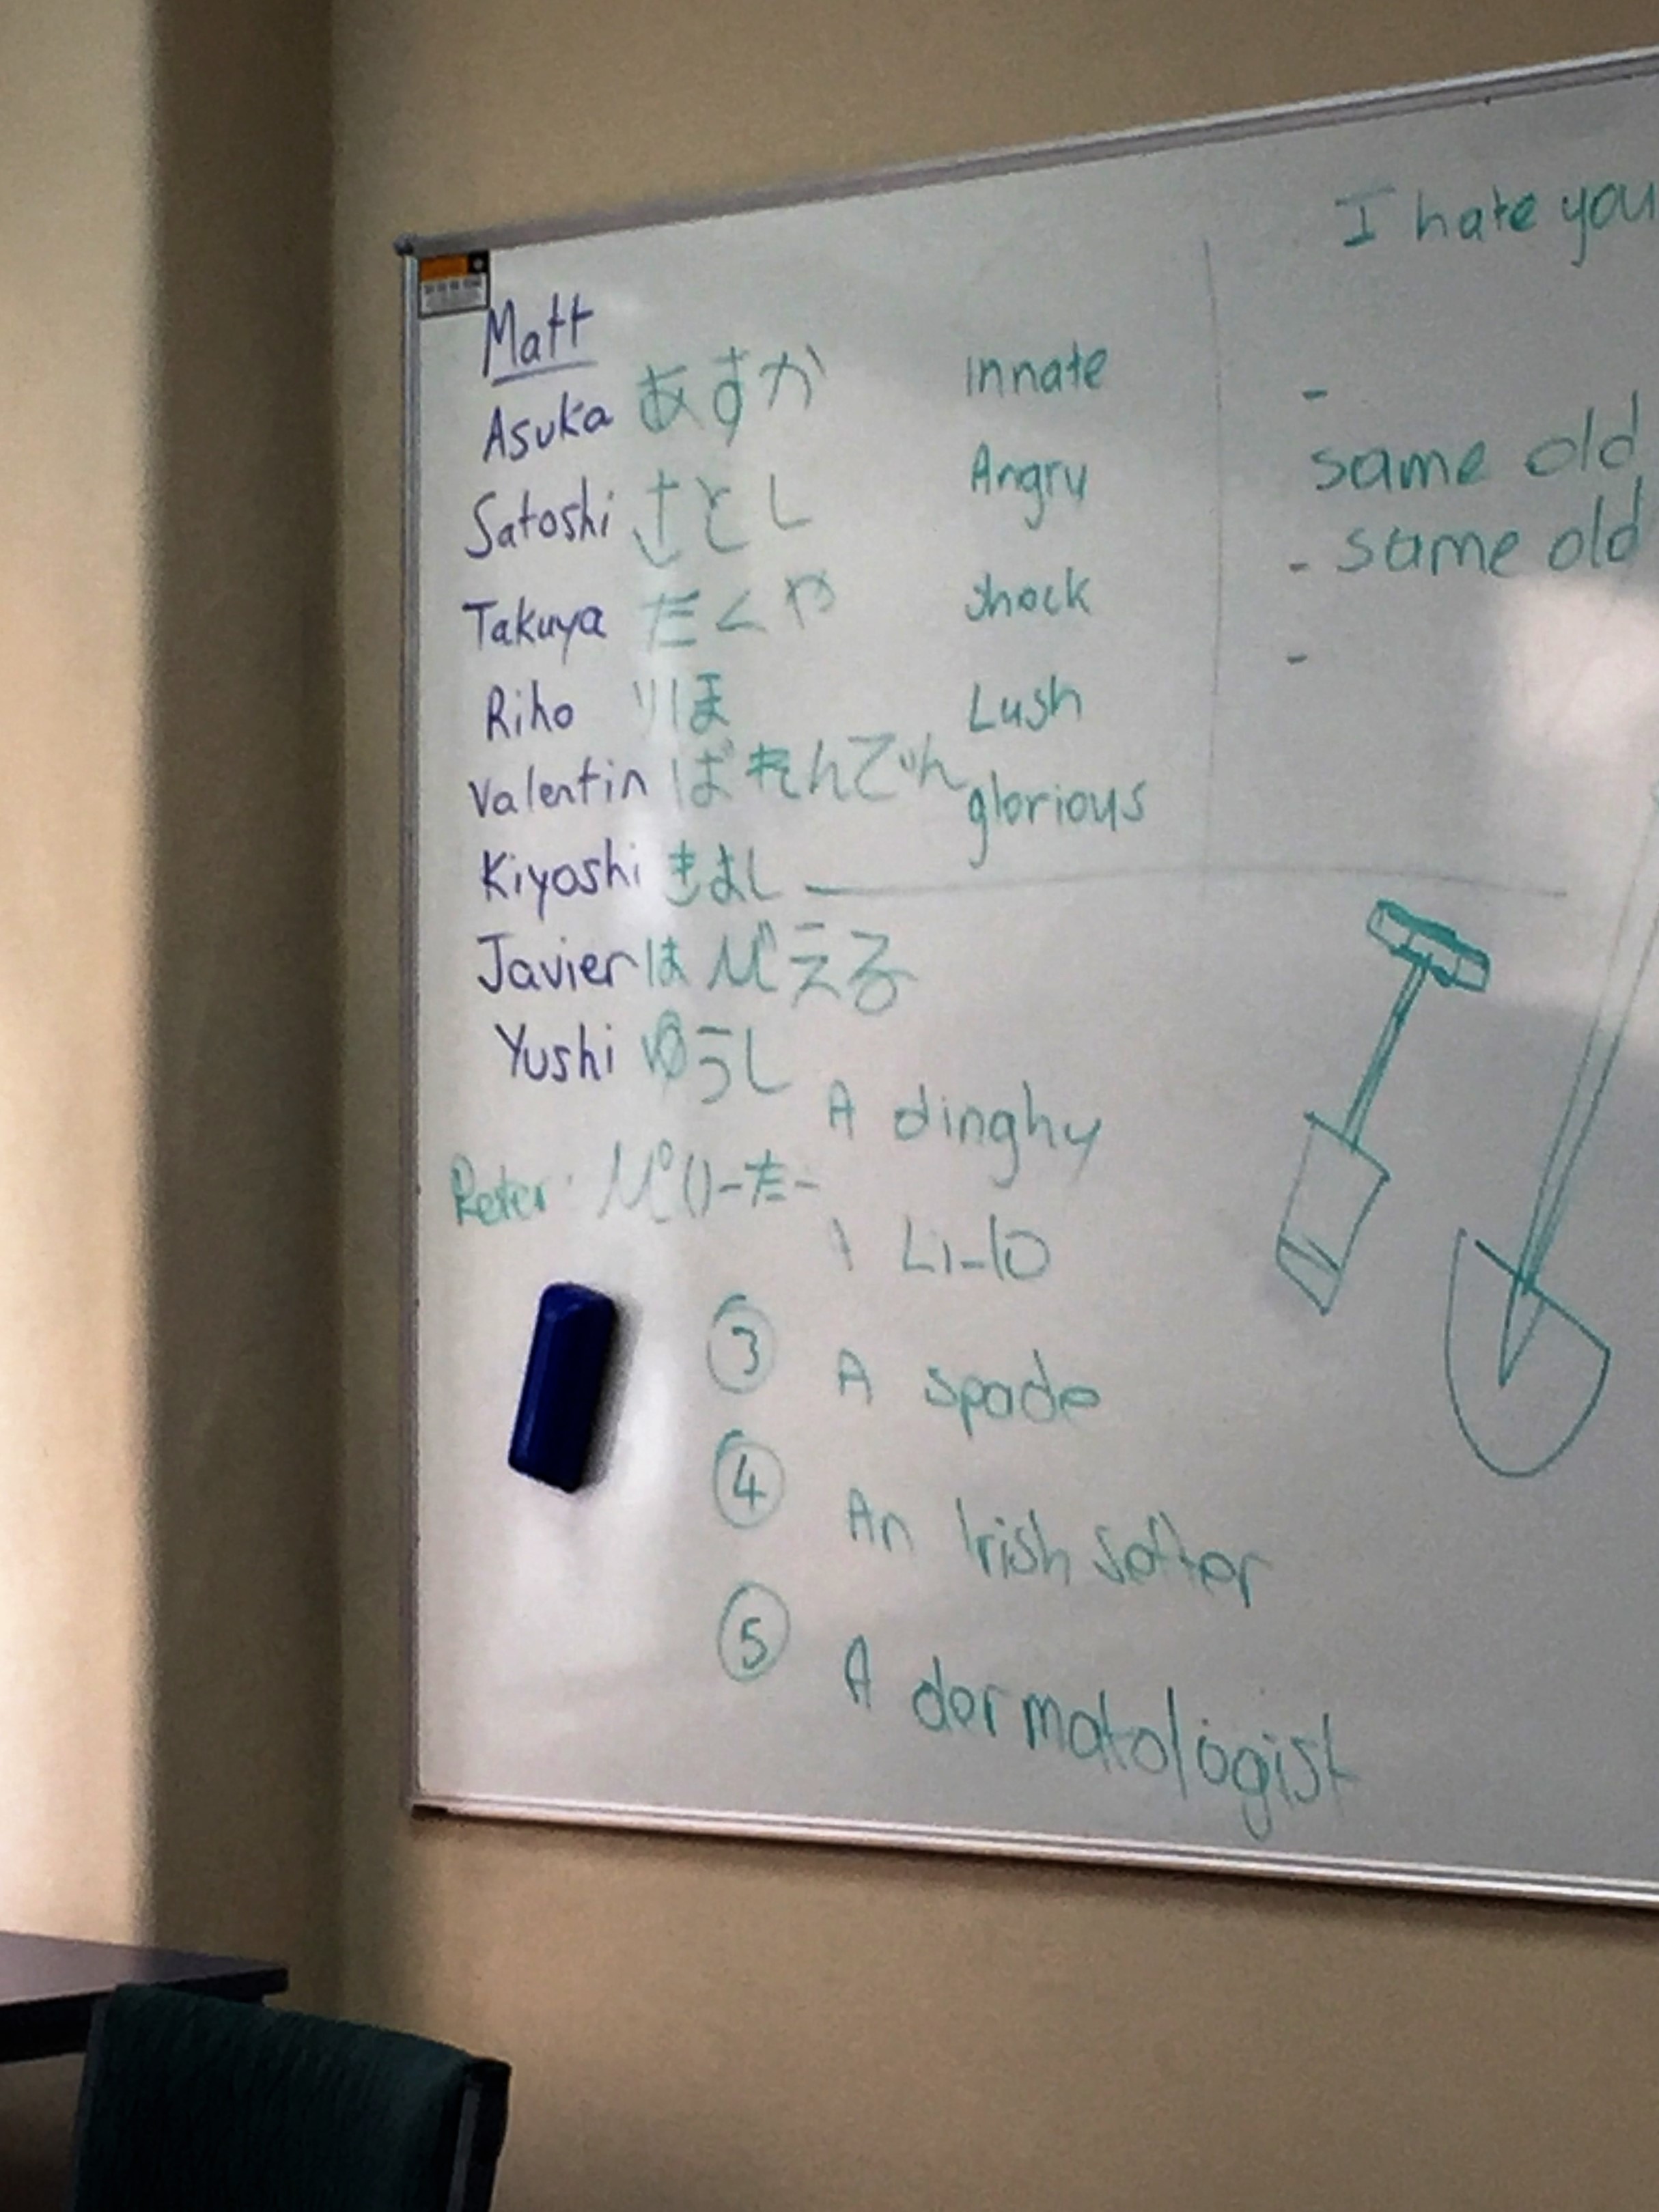 I hate you
Matt
Asuka あすか
Satoshi さとし
Takuya たくや
Riho りほ
Valentin ばれんてぃん
Kiyoshi きよし
Javier はびえる
Yushi ゆうし
Peter ぴーたー
Innate
Angry
shock
Lush
glorious
-
same old
- same old
-
A dinghy
Li-lo
③ A spade
④ An Irish setter
⑤ A dermatologist